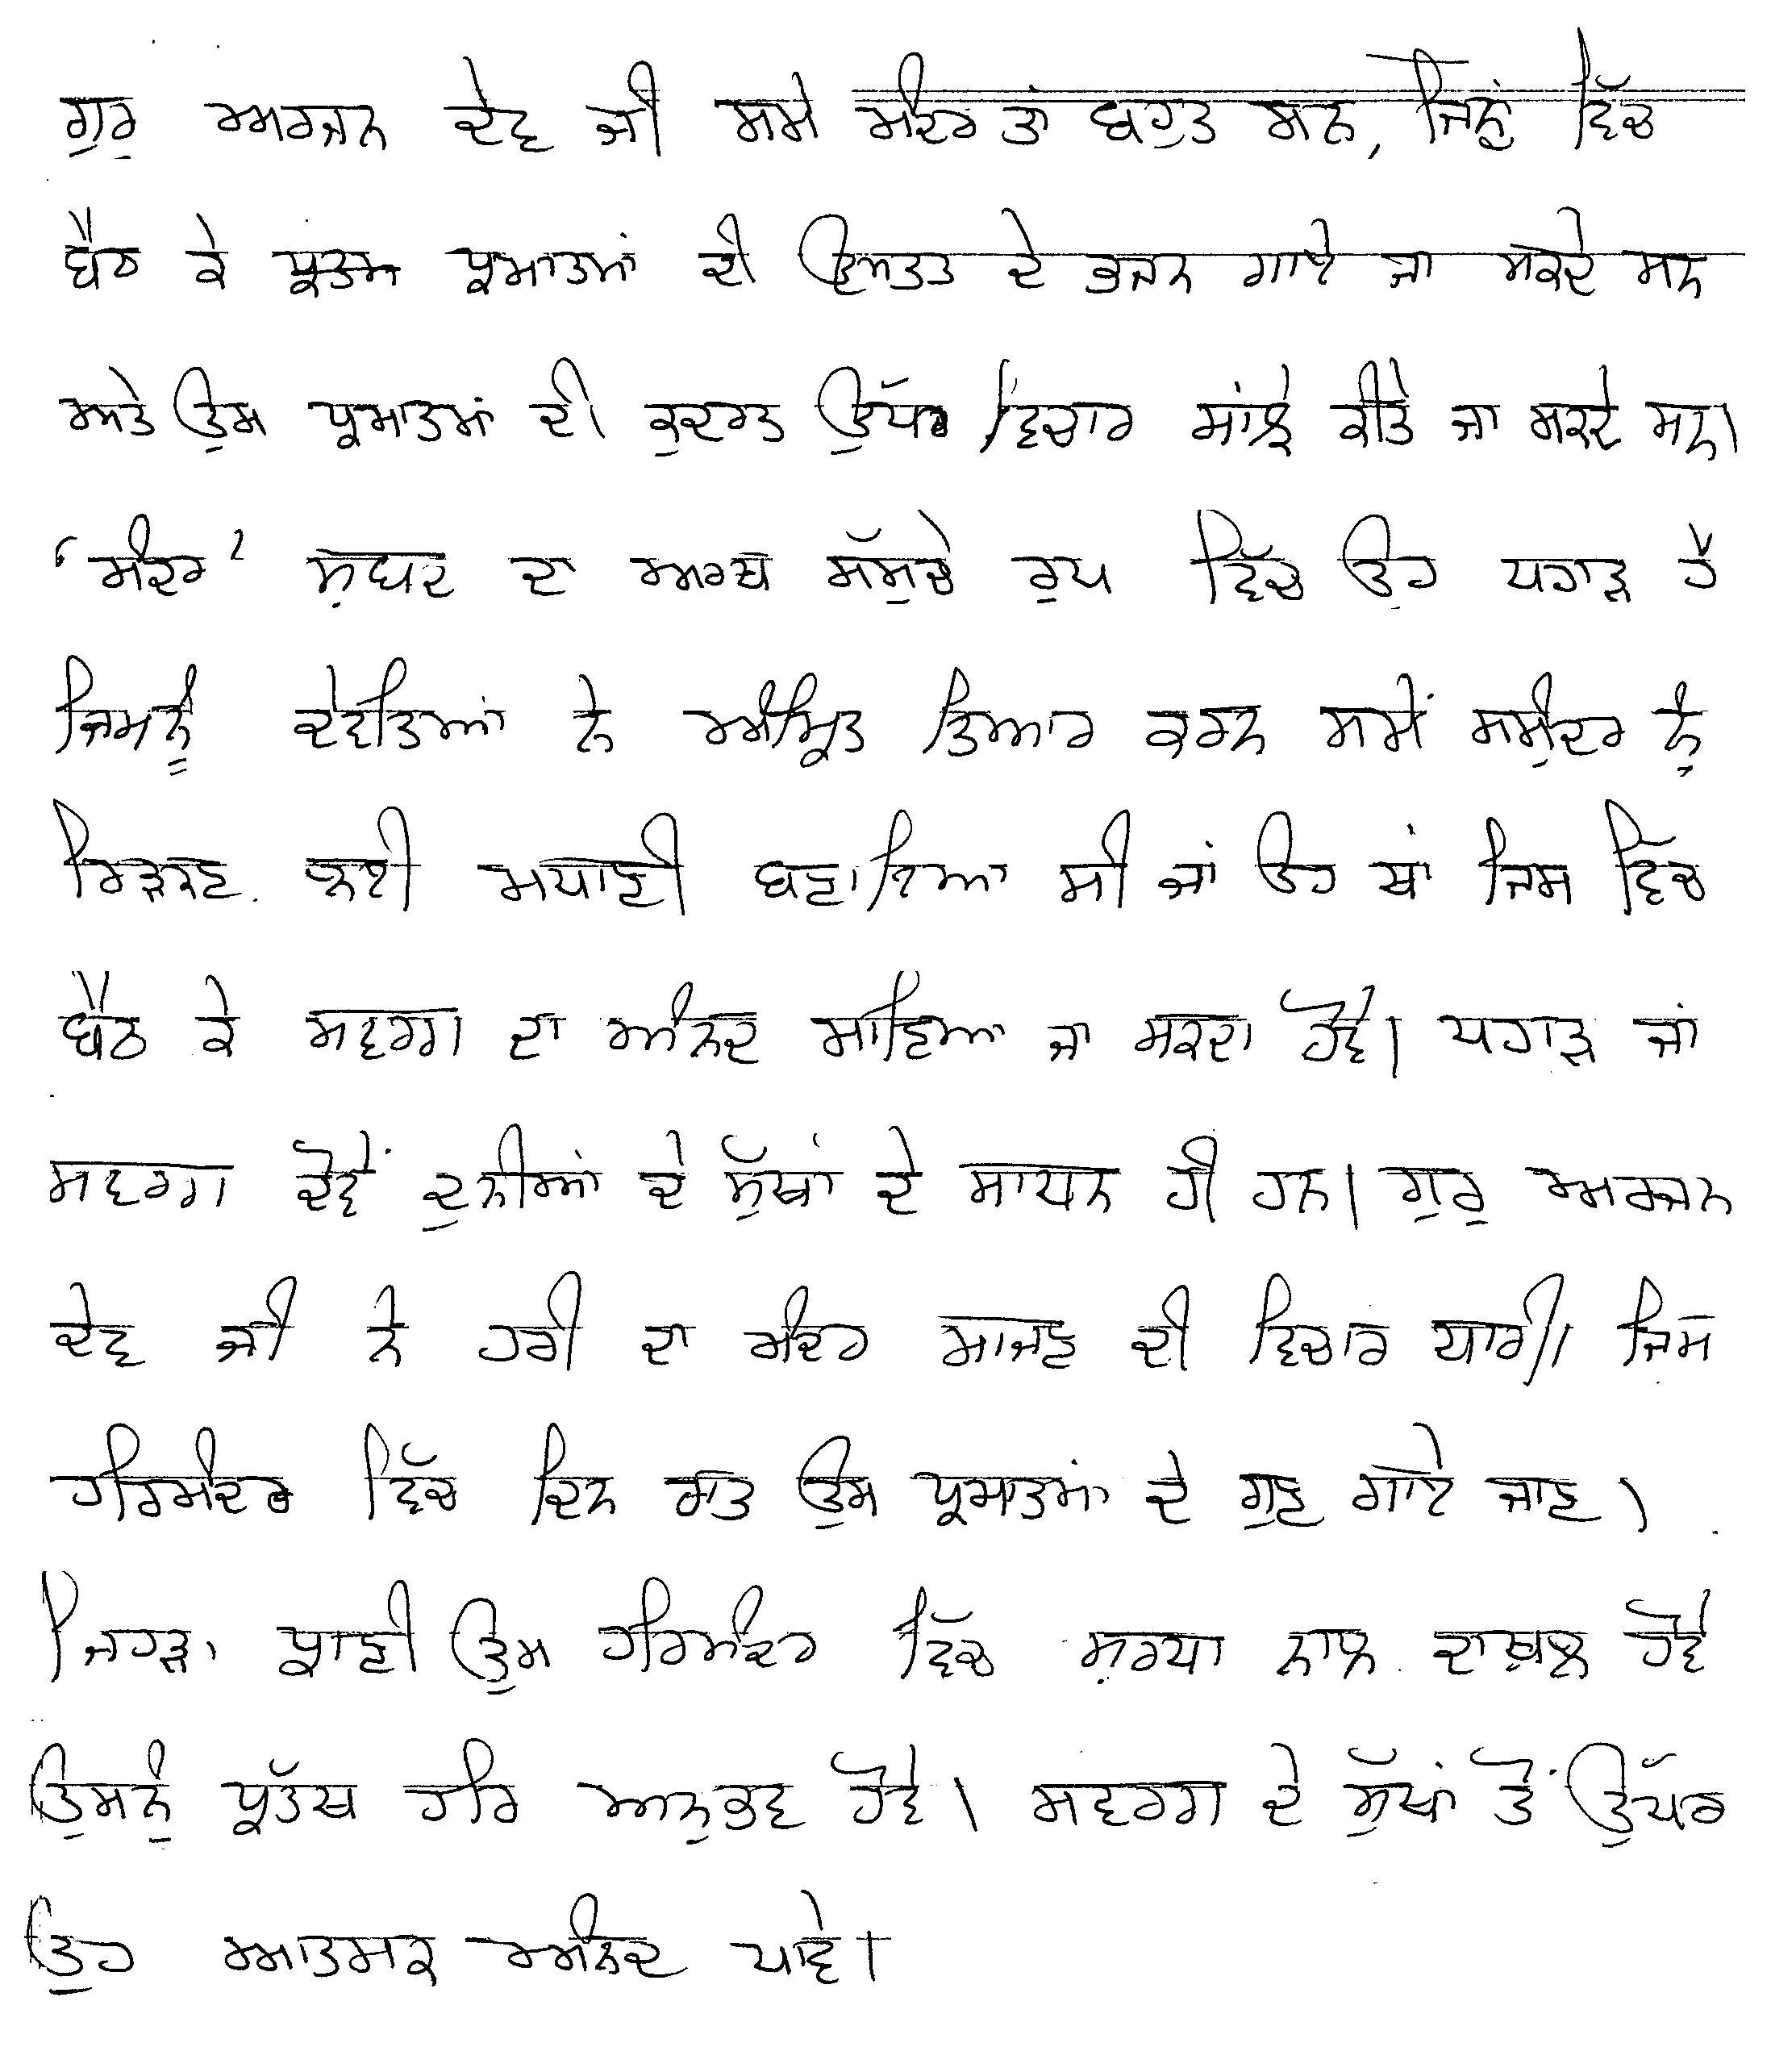 ਗੁਰੂ ਅਰਜਨ ਦੇਵ ਜੀ ਸਮੇਂ ਮੰਦਰ ਤਾਂ ਬਹੁਤ ਸਨ, ਜਿਨ੍ਹਾਂ ਵਿੱਚ
ਬੈਠ ਕੇ ਪ੍ਰਮਾਤਮਾਂ ਦੀ ਉਸਤਤ ਦੇ ਭਜਨ ਗਾਏ ਜਾ ਸਕਦੇ ਸਨ
ਅਤੇ ਉਸ ਪ੍ਰਮਾਤਮਾਂ ਦੀ ਕੁਦਰਤ ਉੱਪਰ ਵਿਚਾਰ ਸਾਂਝੇ ਕੀਤੇ ਜਾ ਸਕਦੇ ਸਨ।
'ਮੰਦਰ' ਸ਼ਬਦ ਦਾ ਅਰਥ ਸੱਮੁਚੇ ਰੂਪ ਵਿੱਚ ਉਹ ਪਹਾੜ ਹੈ
ਜਿਸਨੂੰ ਦੇਵਤਿਆਂ ਨੇ ਅੰਮ੍ਰਿਤ ਤਿਆਰ ਕਰਨ ਸਮੇਂ ਸਮੁੰਦਰ ਨੂੰ
ਰਿੜਕਣ ਲਈ ਮਧਾਣੀ ਬਣਾਇਆ ਸੀ ਜਾਂ ਉਹ ਥਾਂ ਜਿਸ ਵਿੱਚ
ਬੈਠ ਕੇ ਸਵਰਗ ਦਾ ਅਨੰਦ ਮਾਣਿਆ ਜਾ ਸਕਦਾ ਹੋਵੇ। ਪਹਾੜ ਜਾਂ
ਸਵਰਗ ਦੋਵੇਂ ਦੁਨੀਆਂ ਦੇ ਸੁੱਖਾਂ ਦੇ ਸਾਧਨ ਹੀ ਹਨ। ਗੁਰੂ ਅਰਜਨ
ਦੇਵ ਜੀ ਨੇ ਹਰੀ ਦਾ ਮੰਦਰ ਸਾਜਣ ਦੀ ਵਿਚਾਰ ਧਾਰੀ। ਜਿਸ
ਹਰਿਮੰਦਰ ਵਿੱਚ ਦਿਨ ਰਾਤ ਉਸ ਪ੍ਰਮਾਤਮਾਂ ਦੇ ਗੁਣ ਗਾਏ ਜਾਣ।
ਜਿਹੜਾ ਪ੍ਰਾਣੀ ਉਸ ਹਰਿਮੰਦਰ ਵਿੱਚ ਸ਼ਰਧਾ ਨਾਲ ਦਾਖ਼ਲ ਹੋਵੇ
ਉਸਨੂੰ ਪ੍ਰਤੱਖ ਹਰਿ ਅਨੁਭਵ ਹੋਵੇ। ਸਵਰਗ ਦੇ ਸੁੱਖਾਂ ਤੋਂ ਉੱਪਰ
ਉਹ ਆਤਮਕ ਅਨੰਦ ਪਾਵੇ।